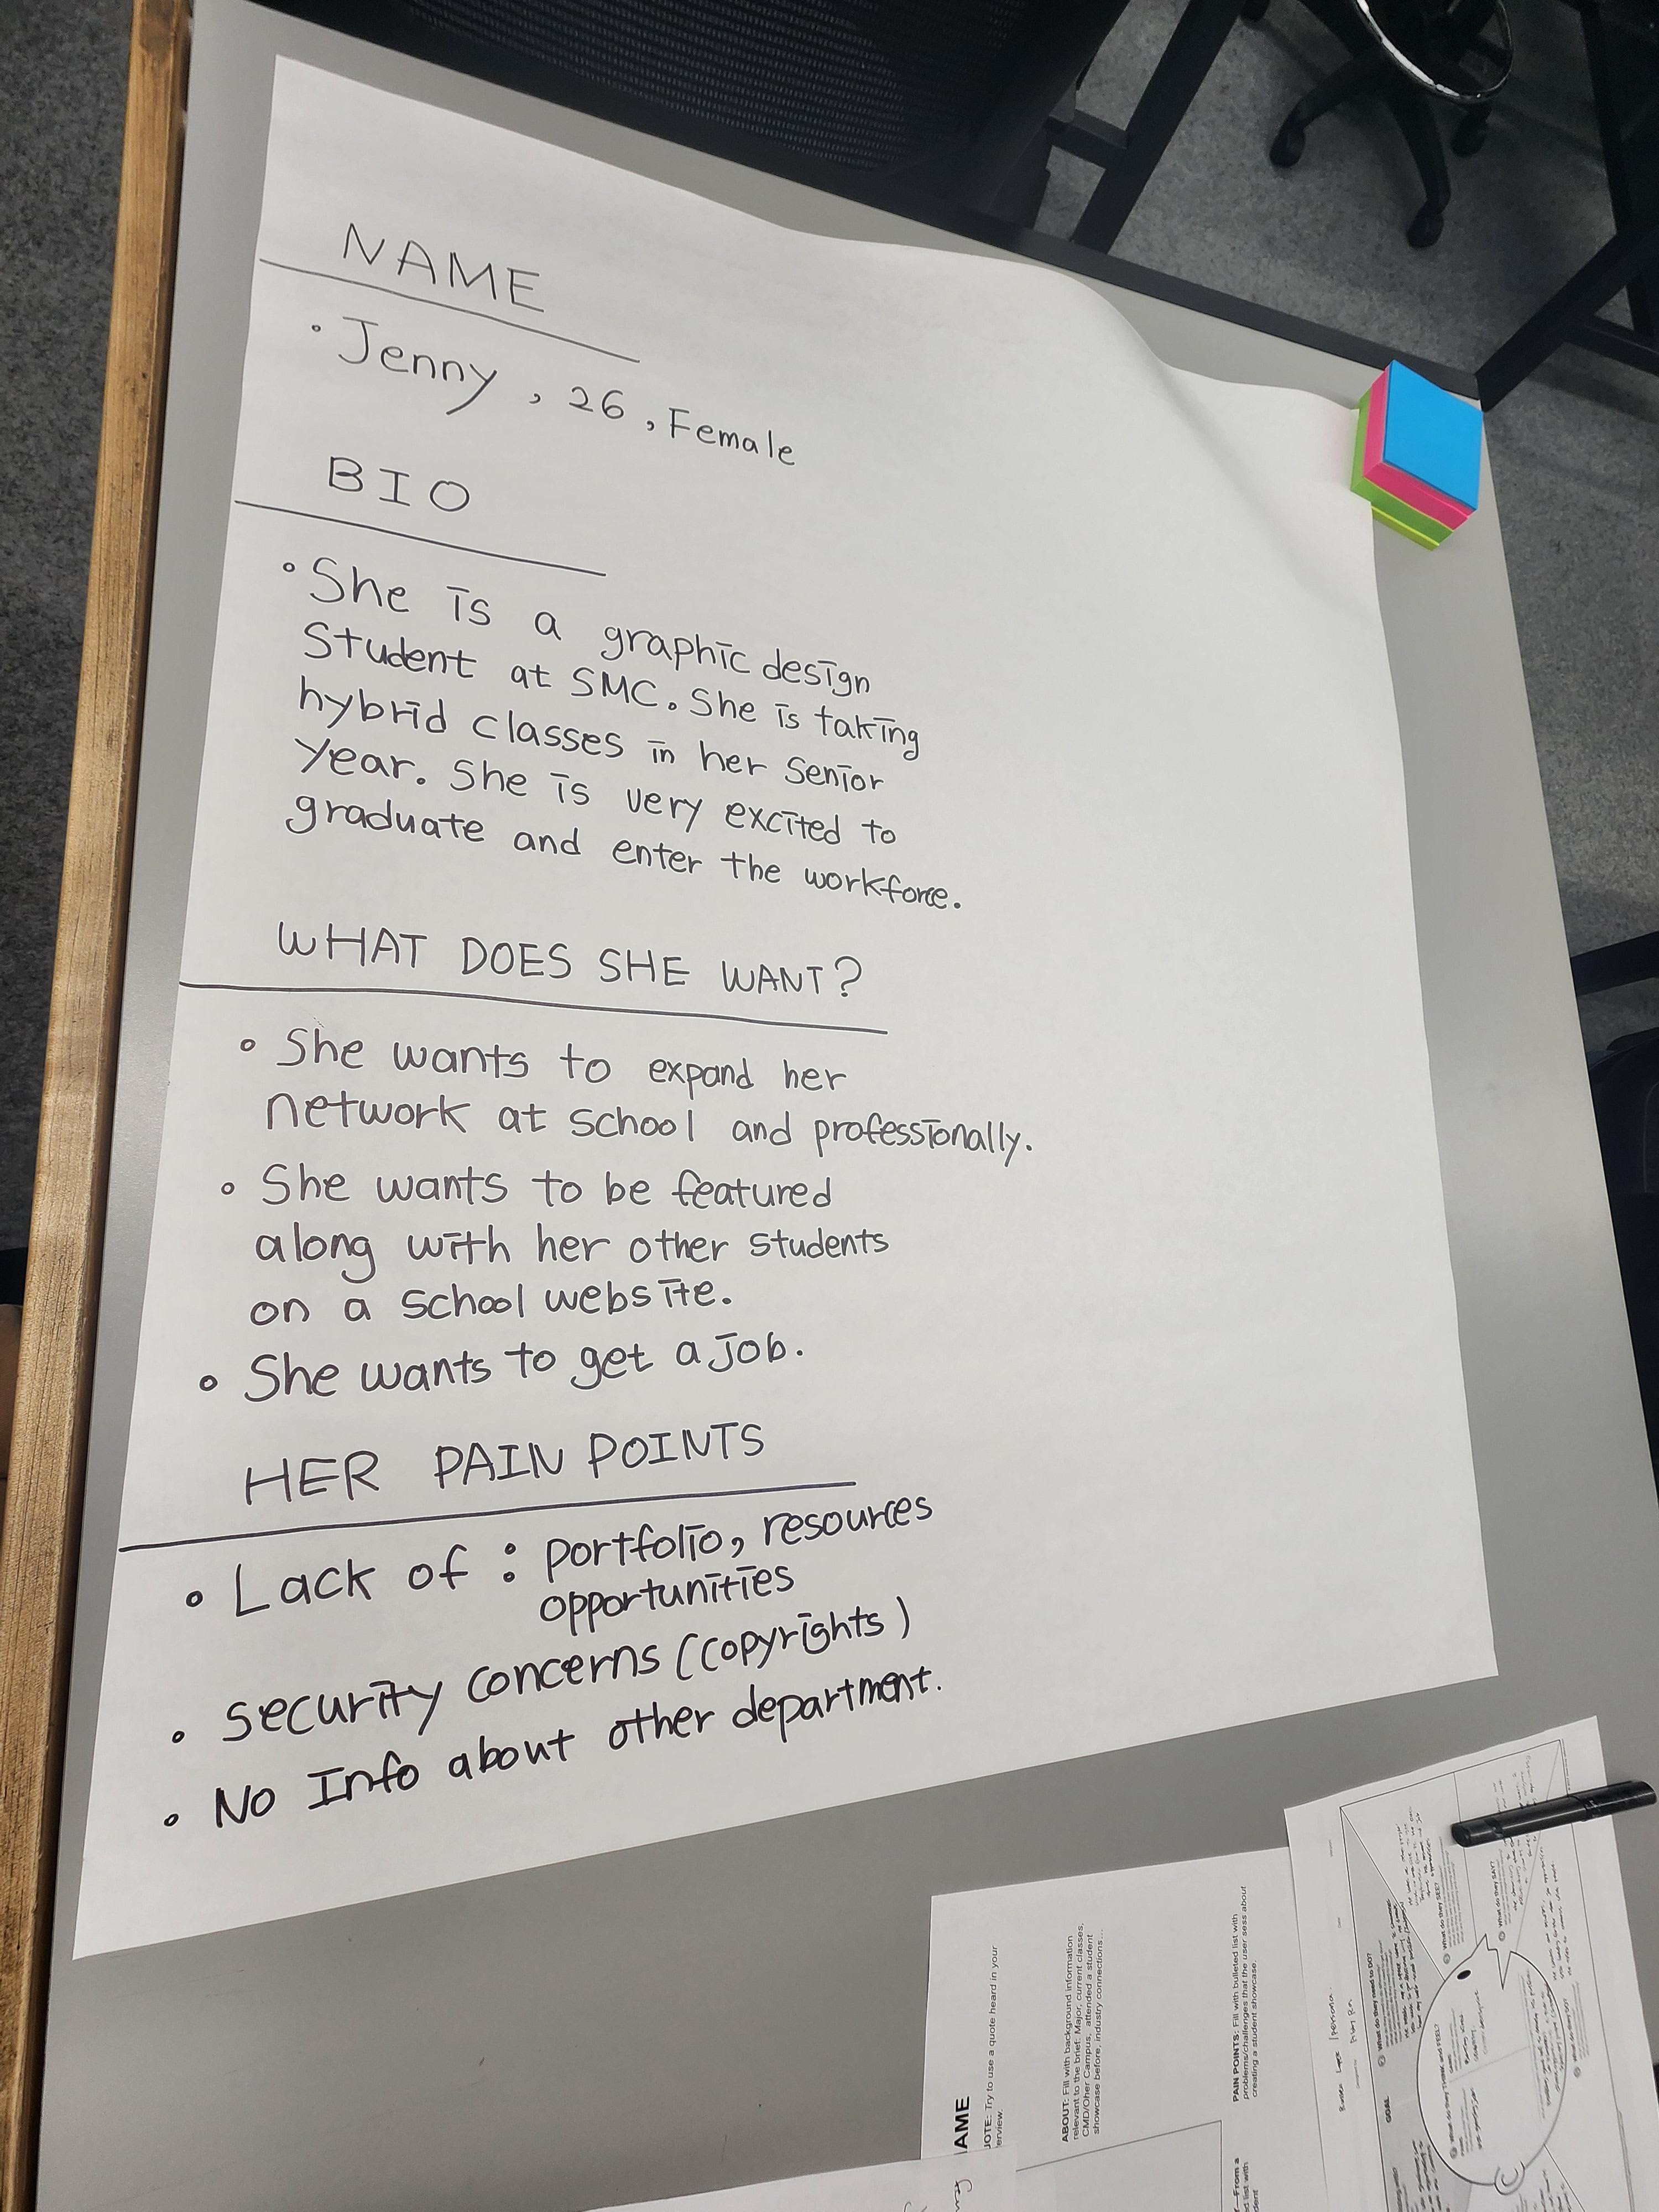 NAME
• Jenny, 26, Female
BIO
• She is a graphic design
Student at SMC. She is taking
hybrid classes in her Senior
year. She is very excited to
graduate and enter the workforce.
WHAT DOES SHE WANT?
• She wants to expand her
network at school and professionally.
• She wants to be featured
along with her other students
on a school website.
• She wants to get a job.
HER PAIN POINTS
• Lack of : portfolio, resources
opportunities
• security concerns (copyrights)
• No Info about other department.
AME
OTE: Try to use a quote heard in your
erview.
ABOUT: Fill with background information
relevant to the brief: Major, current classes,
CMD/Other Campus, attended a student
showcase before, industry connections...
PAIN POINTS: Fill with bulleted list with
problems/challenges that the user sess about
creating a student showcase.
From a
d list with
dent
GOAL
What do they need to DO?
What do they SEE?
What do they SAY?
What do they THINK and FEEL?